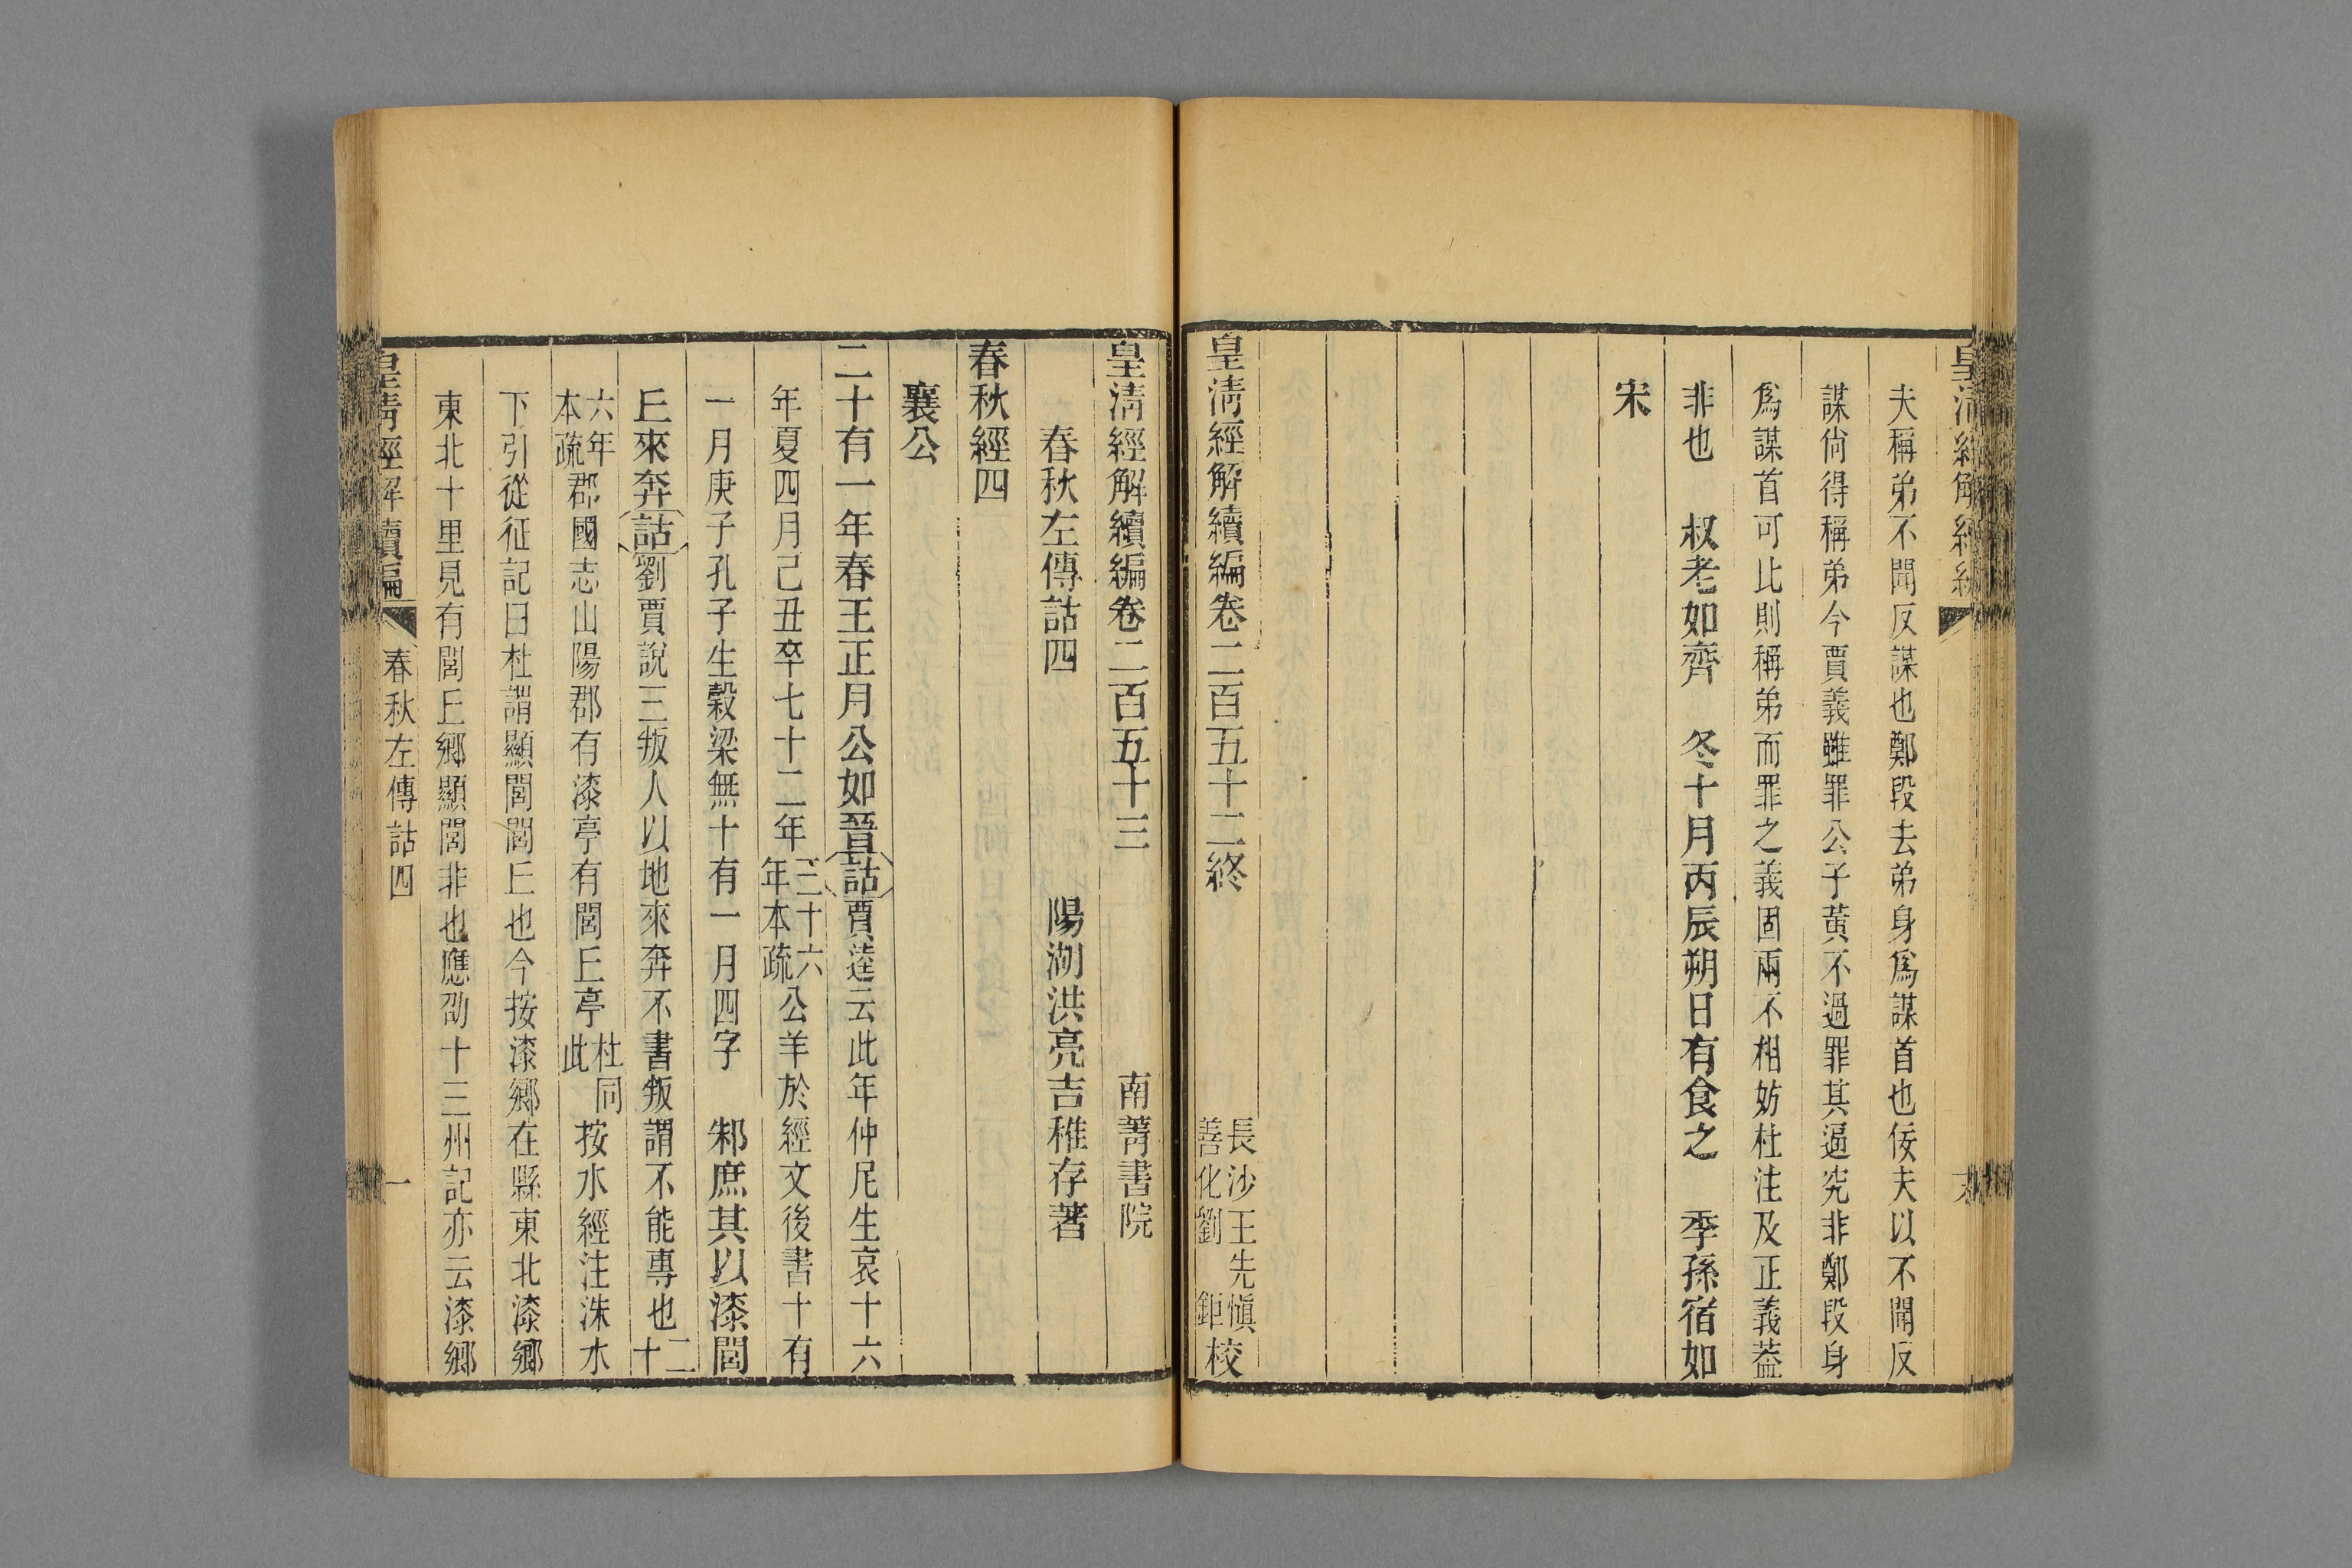 夫稱弟不聞反謀也鄭段去弟身爲謀首也佞夫以不聞反
謀尙得稱弟今賈義雖罪公子黃不過罪其逼究非鄭段身
爲謀首可比則稱弟而罪之義固兩不相妨杜注及正義葢
非也　叔老如齊　冬十月丙辰朔日有食之　季孫宿如
宋
皇淸經解續編卷二百五十二終
長沙王先愼
善化劉　鉅
校
皇淸經解續編卷二百五十三
南菁書院
春秋左傳詁四
陽湖洪亮吉稚存著
春秋經四
襄公
二十有一年春王正月公如晉詁賈逵云此年仲尼生哀十六
年夏四月己丑卒七十二年三十六年本疏公羊於經文後書十有
一月庚子孔子生穀梁無十有一月四字　邾庶其以漆閭
丘來奔詁劉賈說三叛人以地來奔不書叛謂不能專也二十
六年本疏郡國志山陽郡有漆亭有閭丘亭杜同此按水經注洙水
下引從征記曰杜謂顯閭閭丘也今按漆鄉在縣東北漆鄉
東北十里見有閭丘鄉顯閭非也應劭十三州記亦云漆鄉
皇淸經解續編
春秋左傳詁四
一